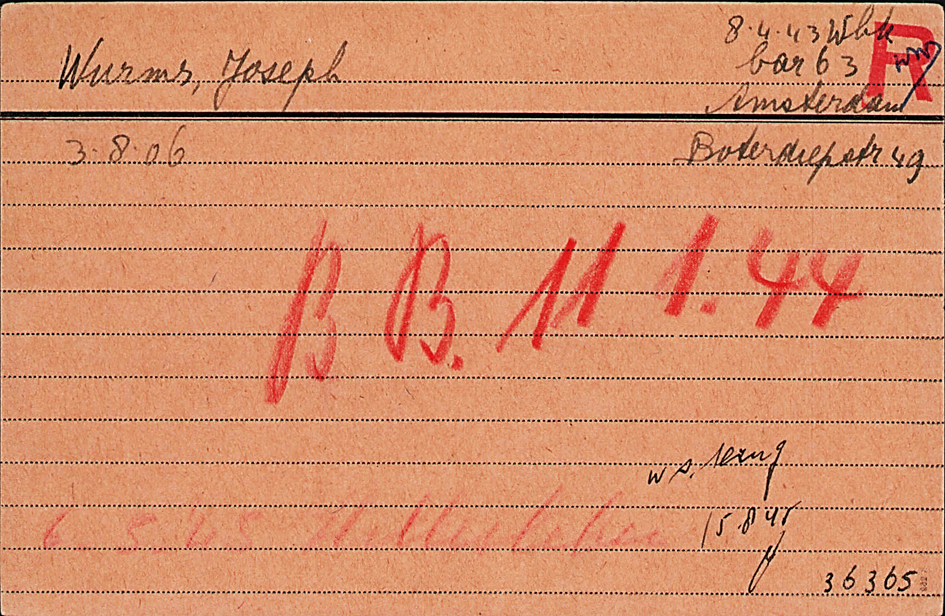 8.4.43 Wbk
R
Wurms, Joseph
bar 63
Amsterdam
3.8.06
Boterdiepstr 49
B B. 11 1.44
w s. terug
6.5.45 Hillersleben
15.8.45
36365